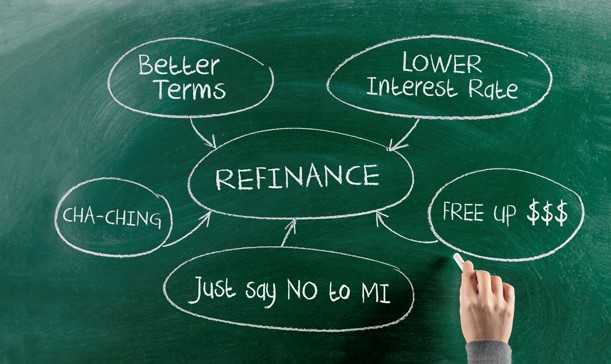 Better
Terms
LOWER
Interest Rate
REFINANCE
CHA-CHING
FREE UP $$$
Just say NO to MI